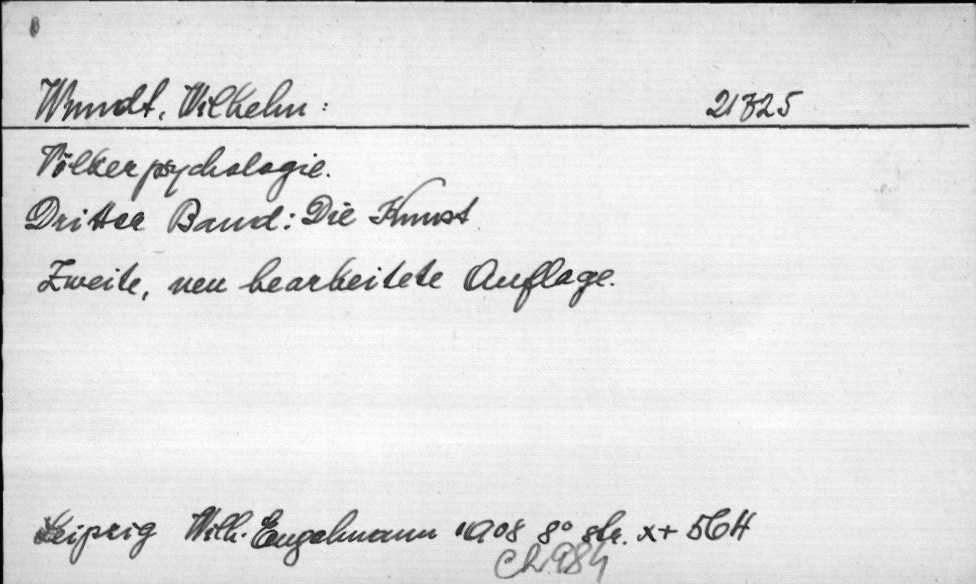 Wundt, Wilhelm: 21325
Völkerpsychologie.
Dritter Band: Die Kunst
Zweite, neu bearbeitete Auflage.
Leipzig Wilh. Engelmann 1908 8° str. X+564